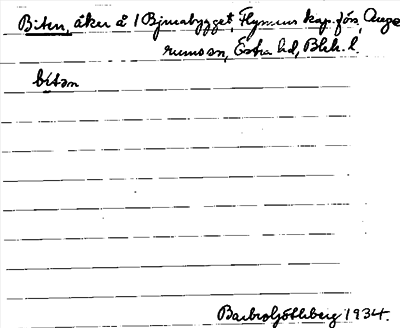 Biten, åker å 1 Bjurabygget, Flymens kap.förs, Auge
rumssn, Östra hd, Blek. l.
bitən
Barbro Göthberg 1934.